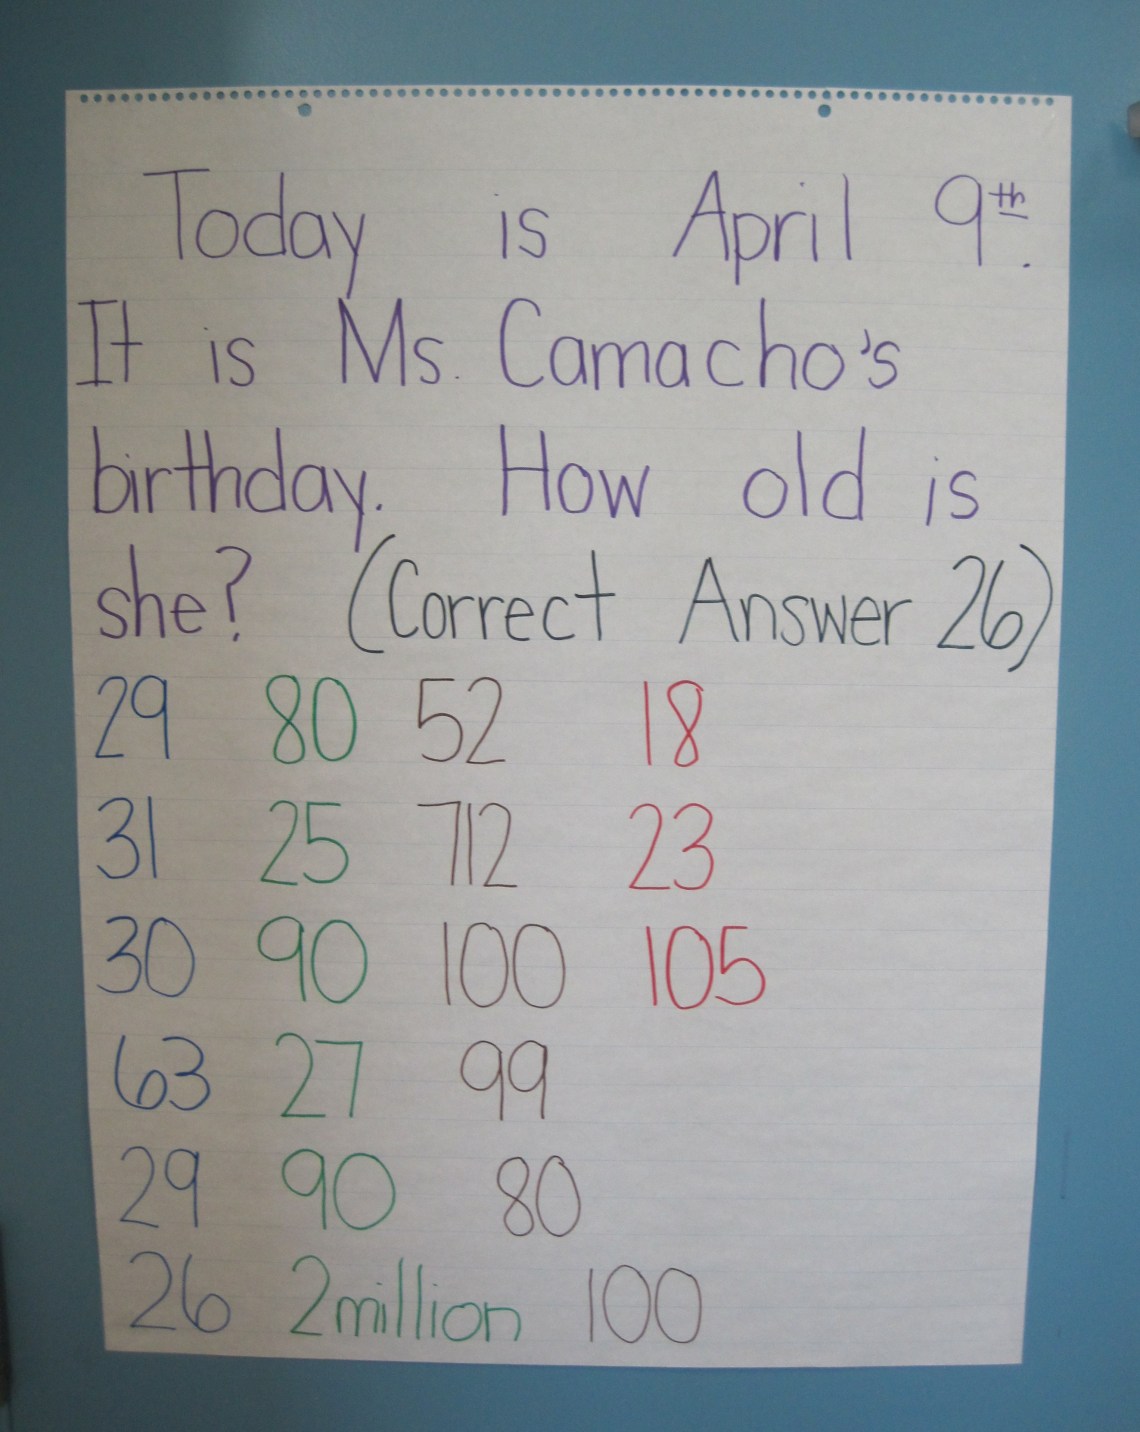 Today is April 9th.
It is Ms. Camacho's
birthday. How old is
she? (Correct Answer 26)
29 80 52 18
31 25 712 23
30 90 100 105
63 27 99
29 90 80
26 2million 100